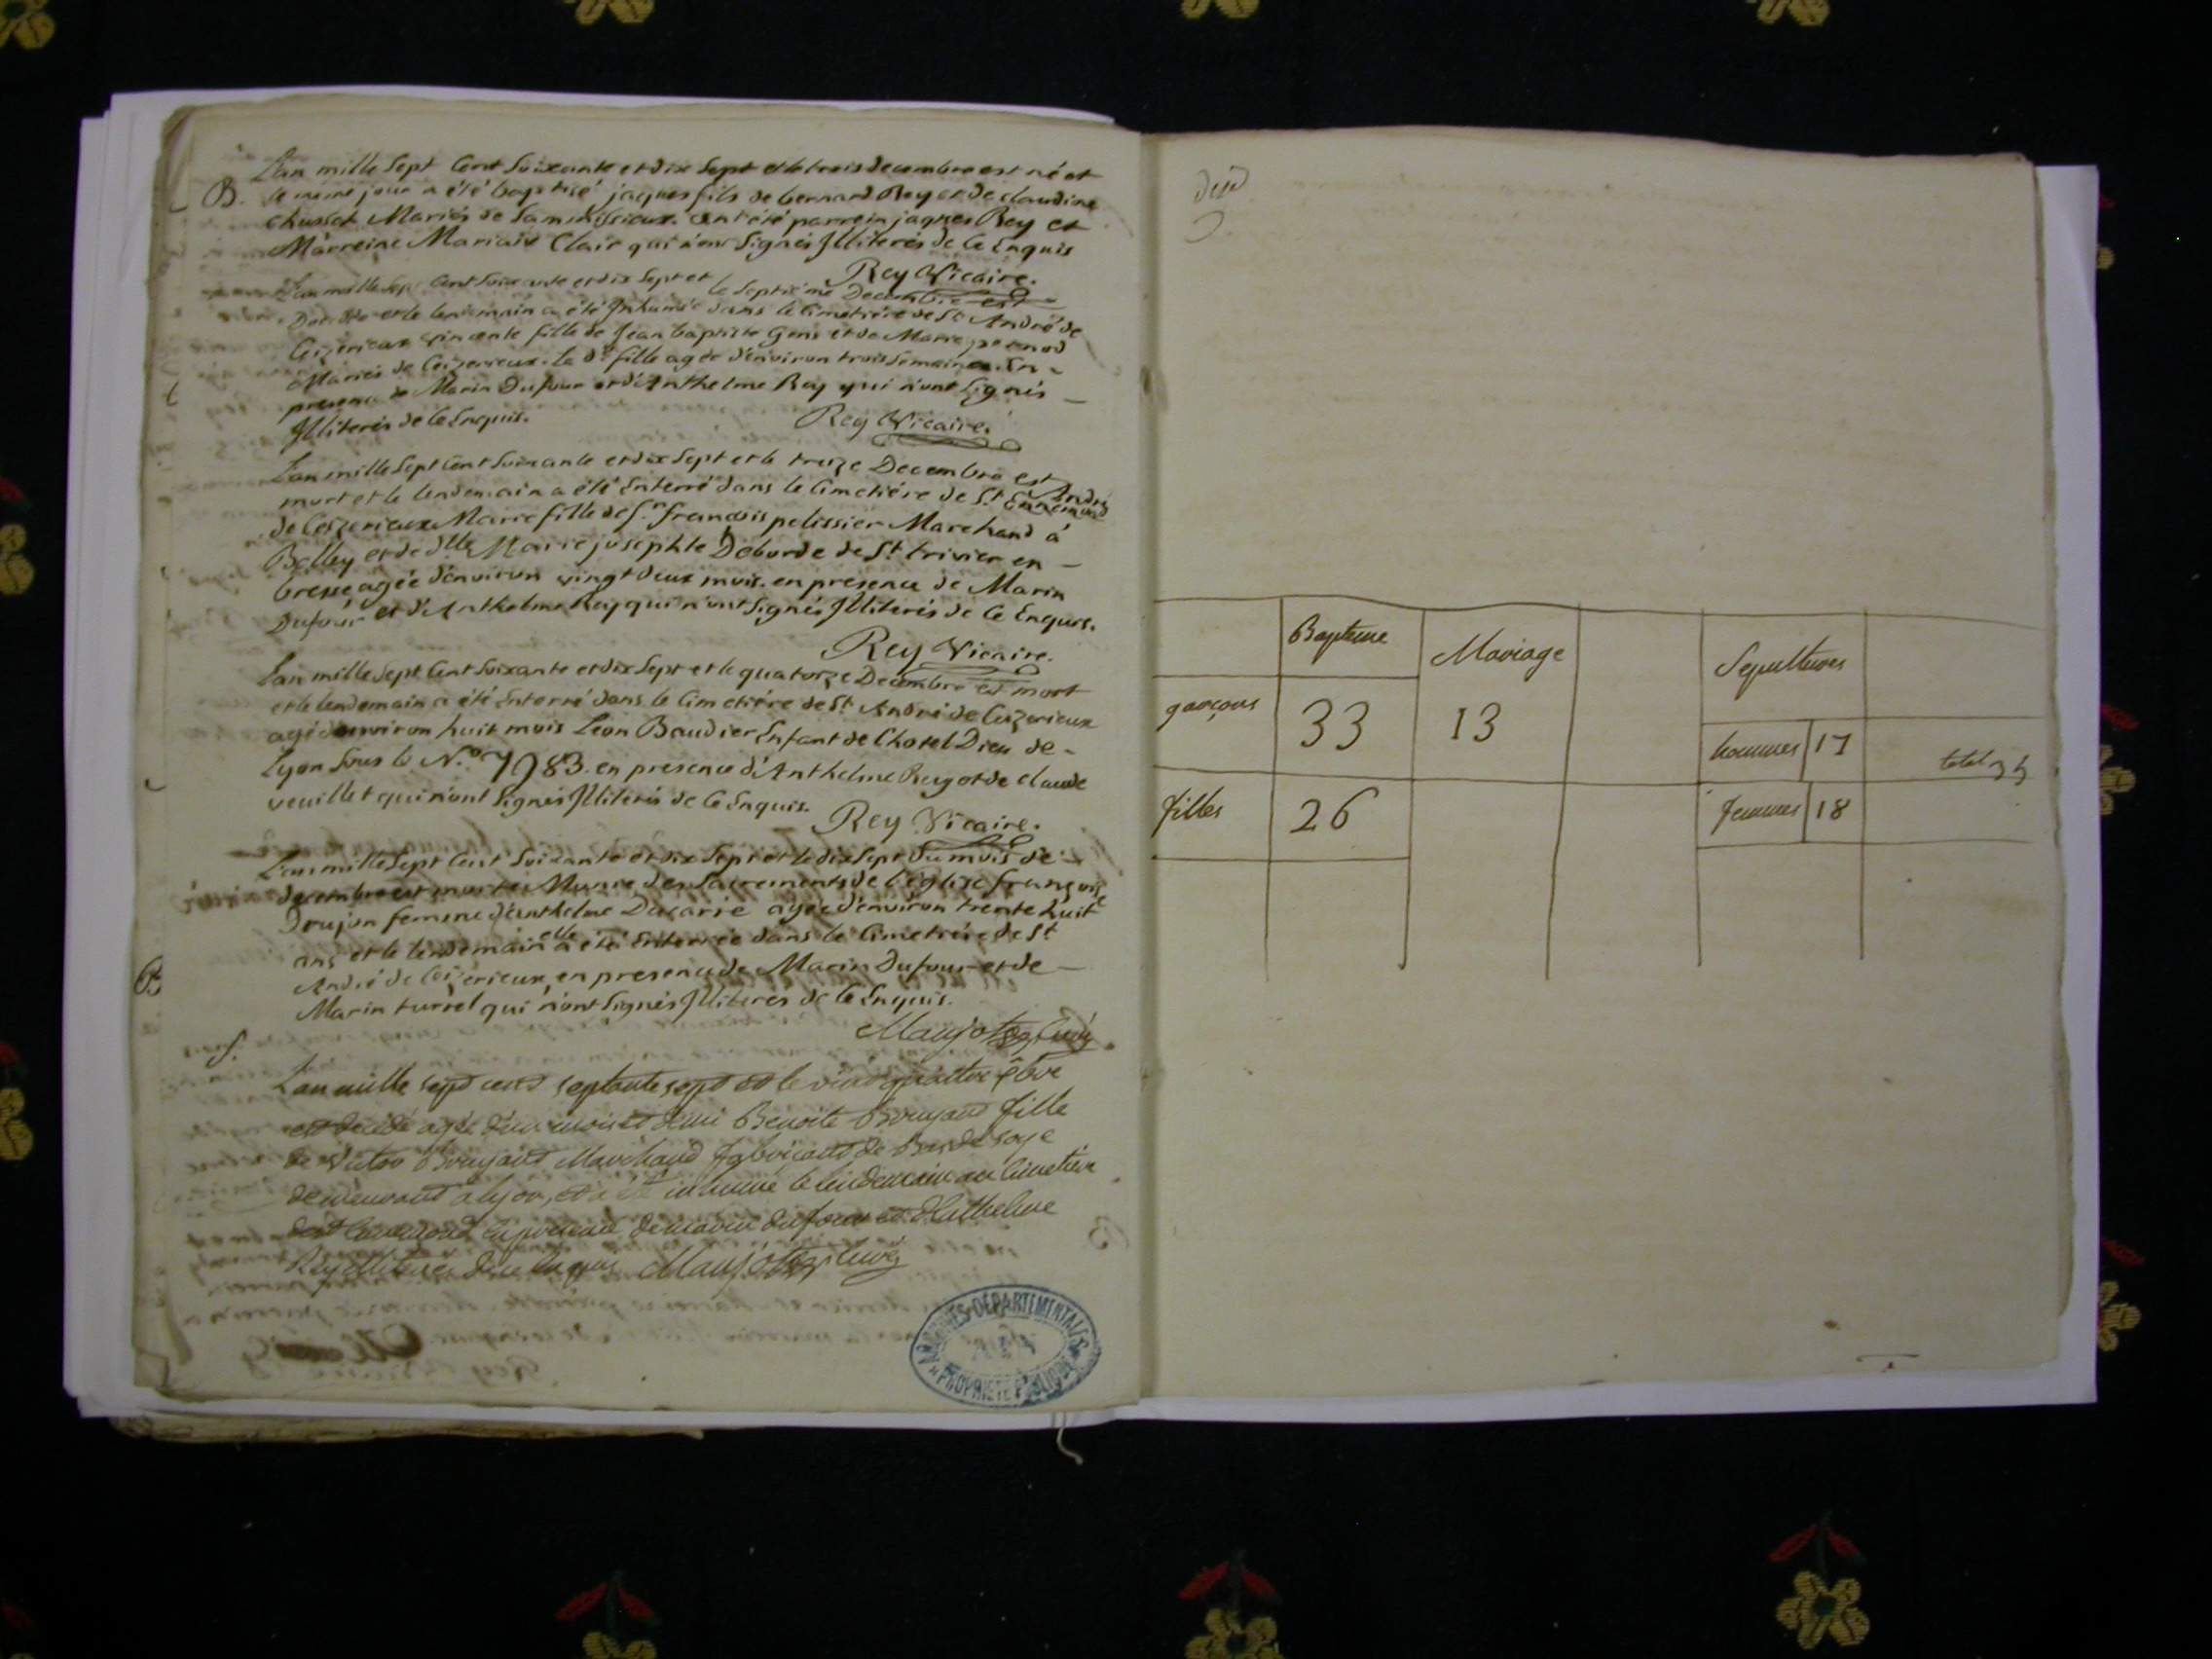 L'an mille Sept Cent Soixante et dix Sept et le trois decembre est né et
B. le meme jour a été baptisé jaques fils de bernard Rey et de claudine
chussot Mariés de Ont été parrein jaques Rey et
Marreine Mariaix Clair qui n'ont Signés Illiterés de ce Enquis
Rey Vicaire.
L'an mille Sept Cent Soixante et dix Sept et le Septième Decembre est
Decedée et le lendemain a été Inhumée dans le Cimetière de St André de
Ceizerieux fille de Jean baptiste Gens et de Marie
Mariés de Ceizerieux. la de fille agée d'environ trois Semaines. En
presence de Marin Dufour et d'Anthelme Rey qui n'ont Signés
Illiterés de ce Enquis. Rey Vicaire.
L'an mille Sept Cent Soixante et dix Sept et le treize Decembre est
mort et le lendemain a été Enterré dans le Cimetière de St Ennemond André
de Ceizerieux Marie fille de Sr. francois pelissier Marchand à
Belley et de dlle Marie josephte Deborde de St trivier en
bresse agée d'environ vingt deux mois. en presence de Marin
Dufour et d'Anthelme Rey qui n'ont Signés Illiterés de ce Enquis.
Rey Vicaire.
L'an mille Sept Cent Soixante et dix Sept et le quatorze Decembre est mort
et le lendemain a été Enterré dans le Cimetière de St. André de Ceizerieux
agé d'environ huit mois Leon Baudier Enfant de l'hotel Dieu de
Lyon Sous le N.o 7983. en presence d'Anthelme Rey et de claude
veuillet qui n'ont Signés Illiterés de ce Enquis.
Rey Vicaire.
L'an mille Sept Cent Soixante et dix Sept et le dix Sept du mois de
decembre est morte Munie des Sacrements de l'église françoise
Drujon femme d'Anthelme Ducarre agée d'environ trente huit
ans et le lendemain elle a été Enterrée dans le Cimetière de St
André de Ceizerieux, en presence de Marin Dufour et de
Marin turrel qui n'ont Signés Illiterés de ce Enquis.
Maujot Curé
S.
L'an mille sept cent septante sept et le vingt quattre
est decedé agée d'un mois et demi Benoite Brujaud fille
de Victor Brujaud Marchand fabricant de Bas de soye
demeurant a lyon, et a été inhumé le lendemain au Cimetiere
de St Ennemond en presence de marin dufour et d'Anthelme
Rey illiterés de ce enquis Maujot Curé
ARCHIVES DEPARTEMENTALES
AIN
PROPRIÉTÉ PUBLIQUE
Bapteme Mariage Sepultures
garçons 33 13
hommes 17 total 35
filles 26 femmes 18